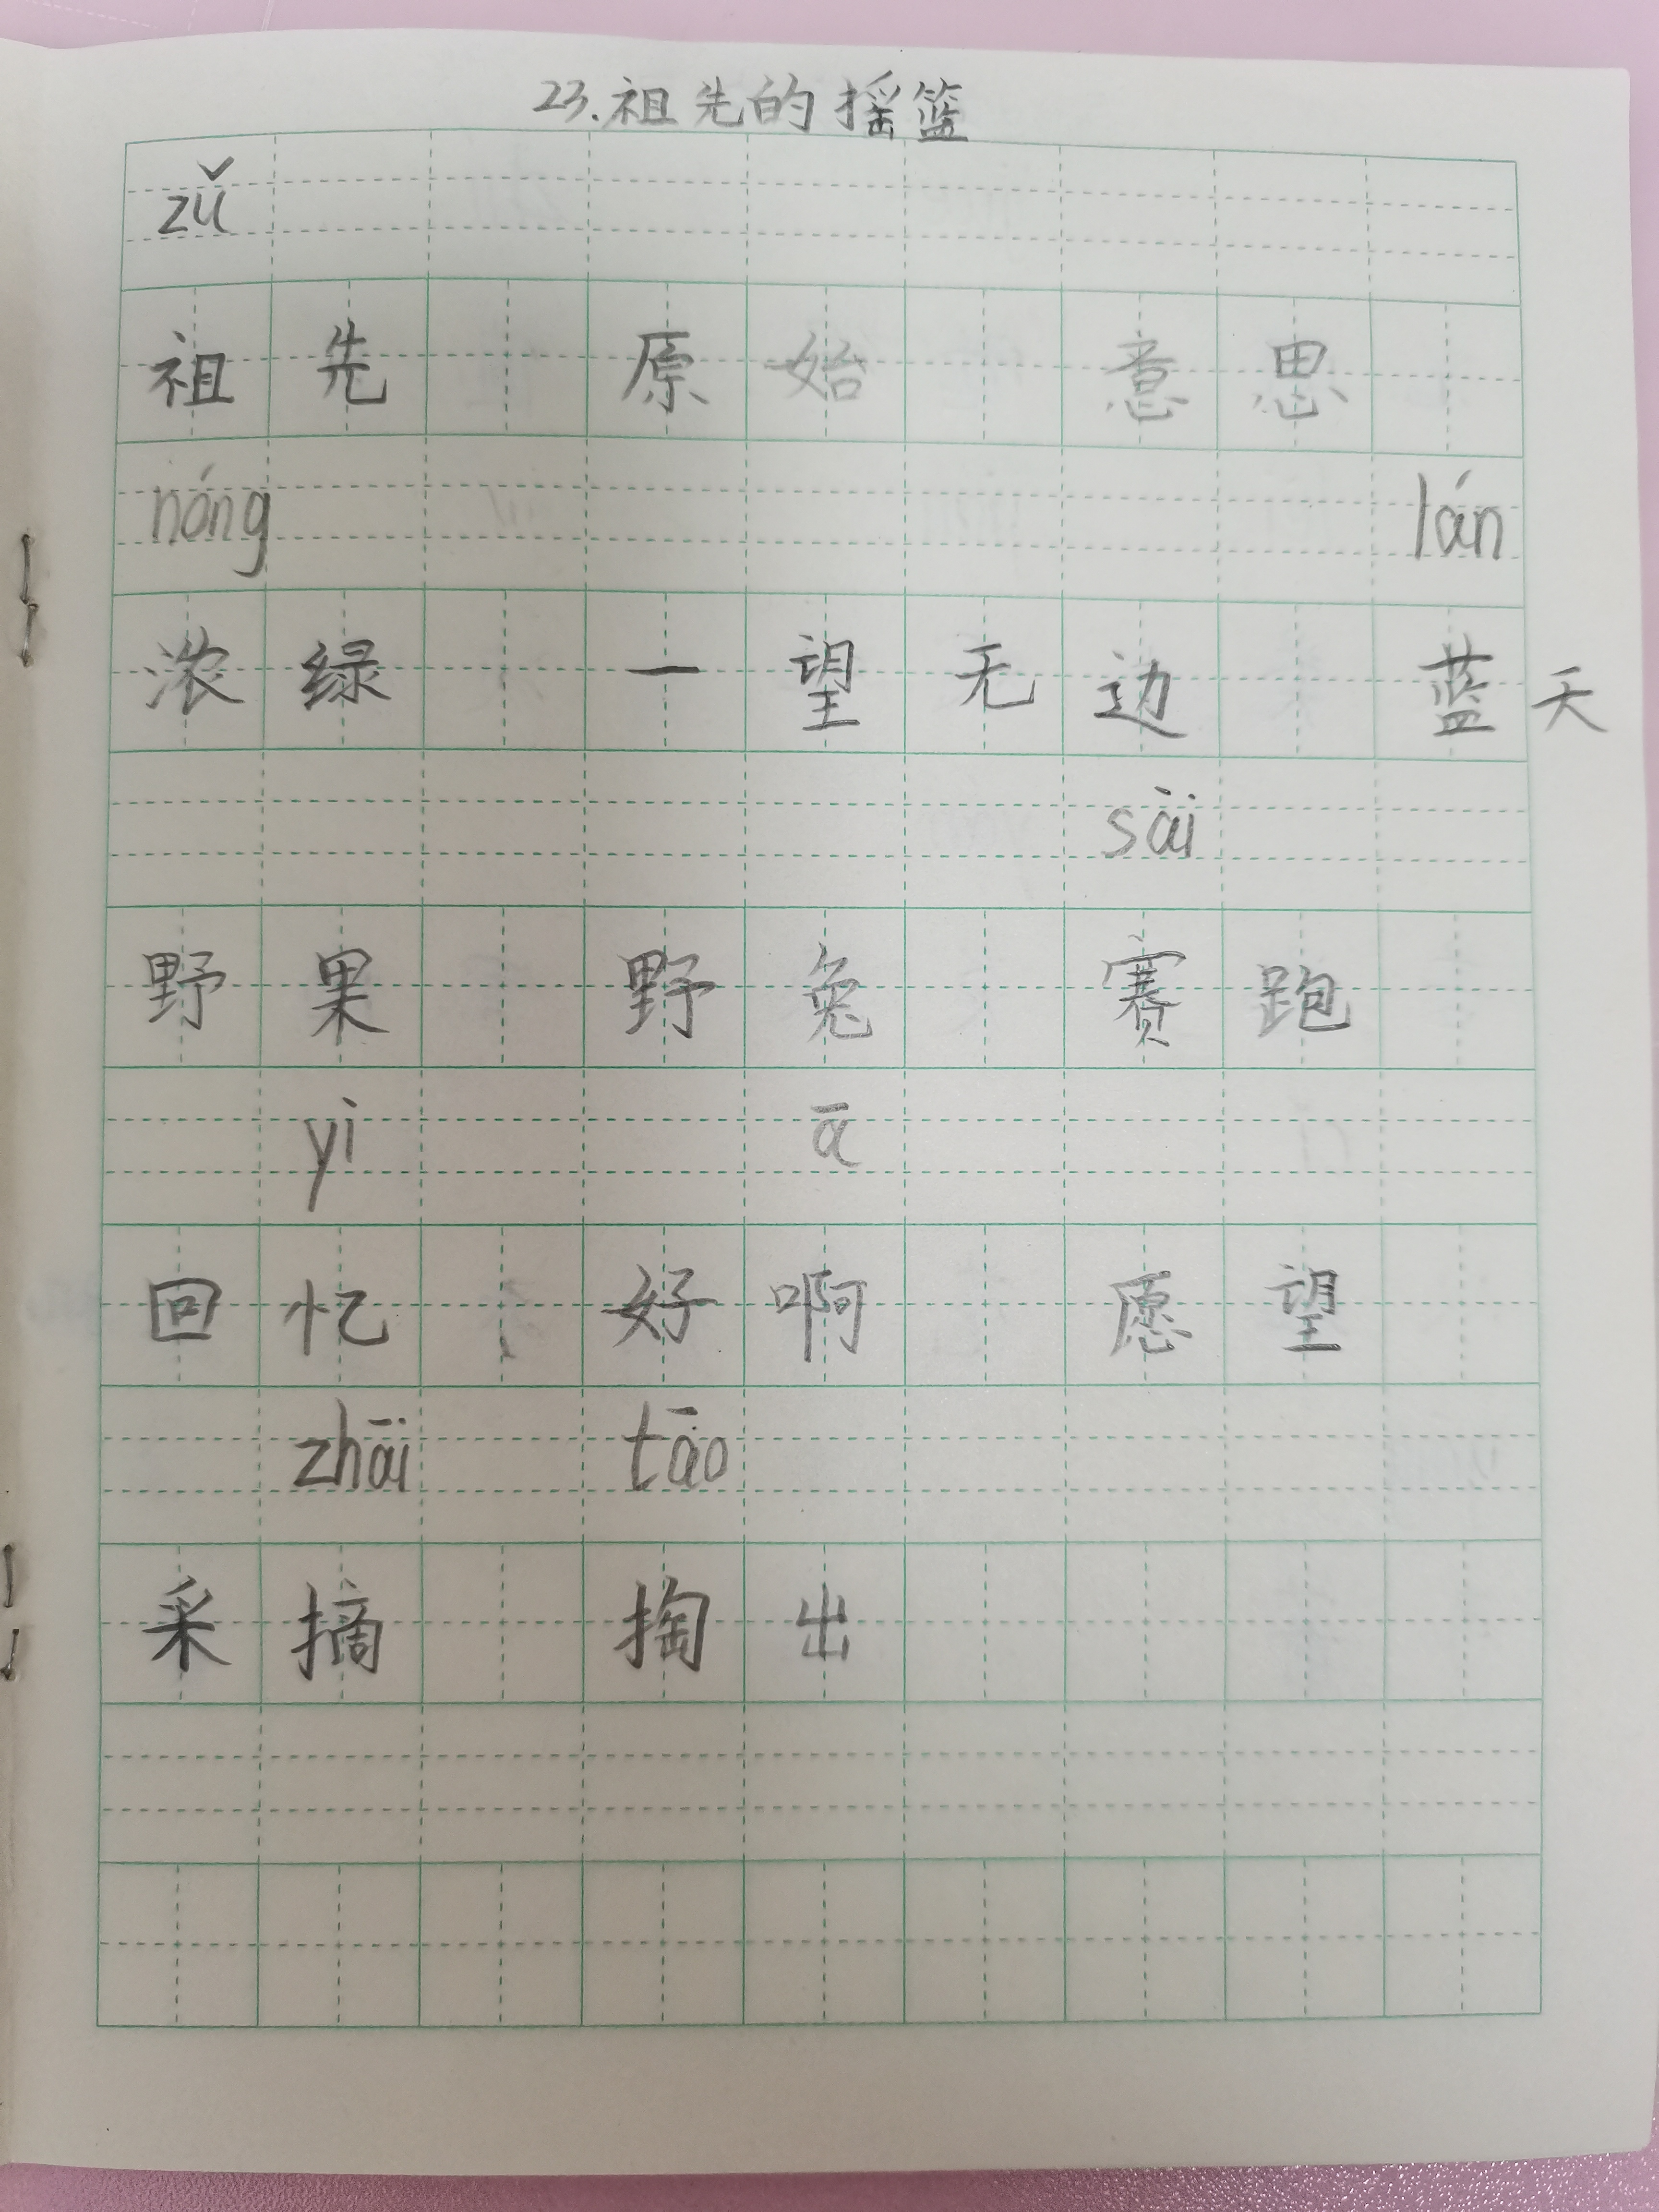 23.祖先的摇篮
zǔ
祖先 原始 意思
nóng lán
浓绿 一望无边 蓝天
sài
野果 野兔 赛跑
yì ā
回忆 好啊 愿望
zhāi tāo
采摘 掏出